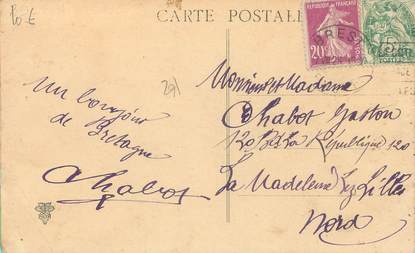 CARTE POSTALE
BREST
20c
Un bonjour
de Bretagne
Chabot
Monsieur et Madame
Chabot Gaston
120 Bd La République 120
La Madeleine lez Lille
Nord